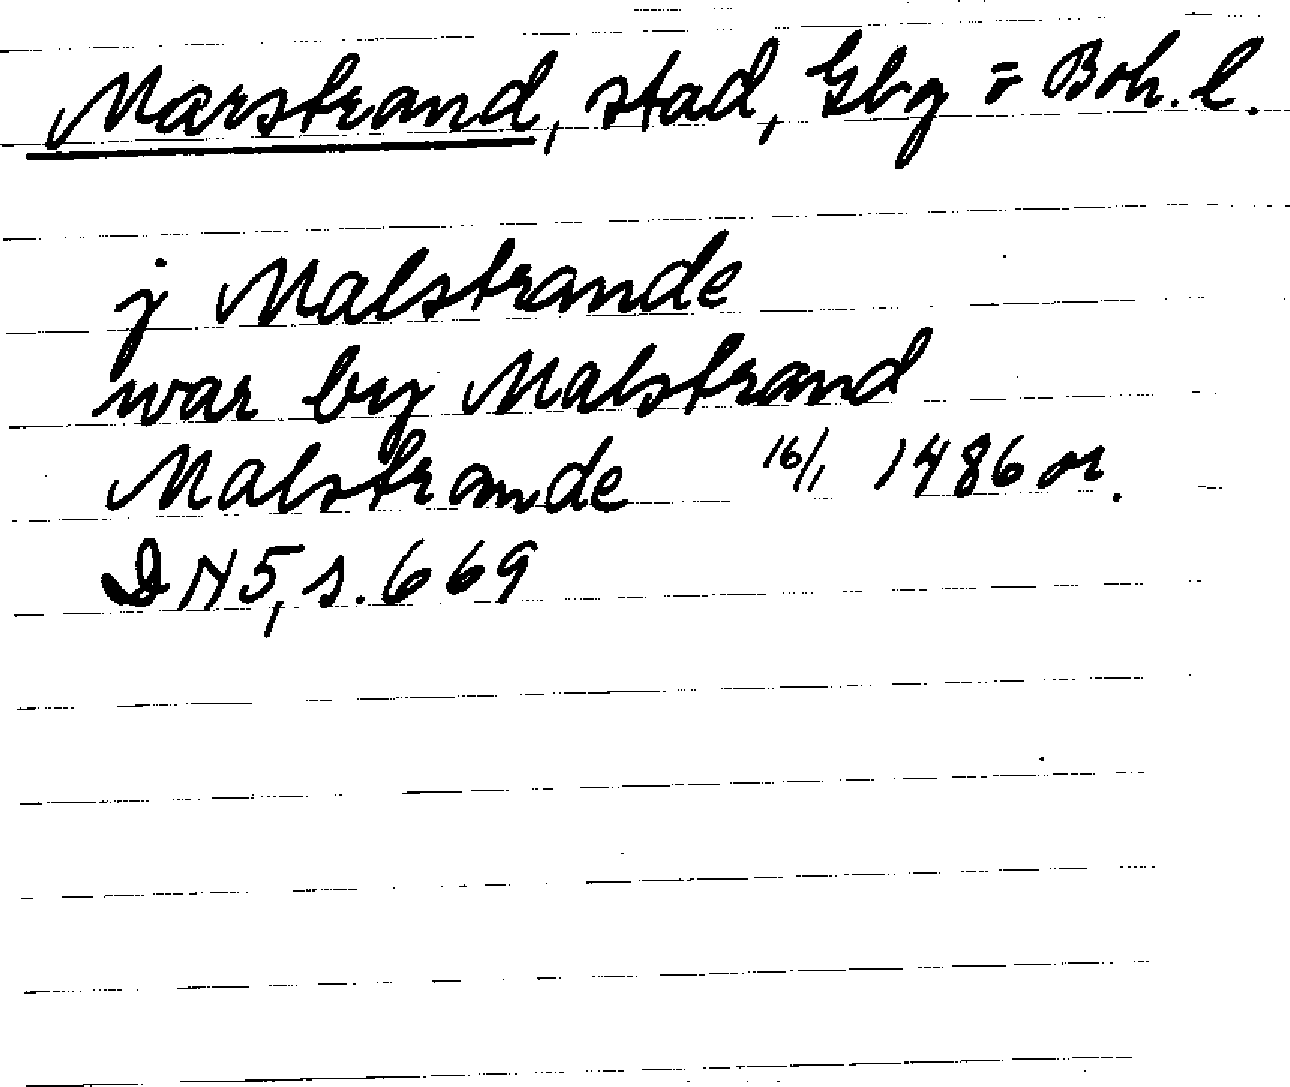 Marstrand, stad, Gbg = Boh. l.
j Malstrande
war by Malstrand
Malstrande 16/1 1486 or.
DN 5, s. 669